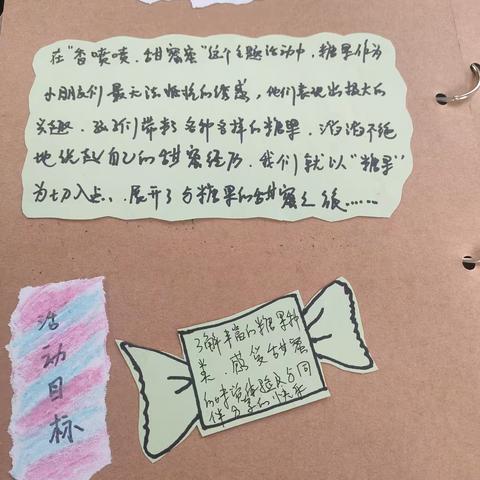 在“香喷喷、甜蜜蜜”这个主题活动中，糖果作为
小朋友们最无法抵抗的诱惑，他们表现出极大的
兴趣。孩子们带来各种各样的糖果，滔滔不绝
地说起自己的甜蜜经历。我们就以“糖果”
为切入点、展开了与糖果的甜蜜之旅……
活动目标
了解丰富的糖果种
类，感受甜蜜
的味道体验与同
伴分享的快乐